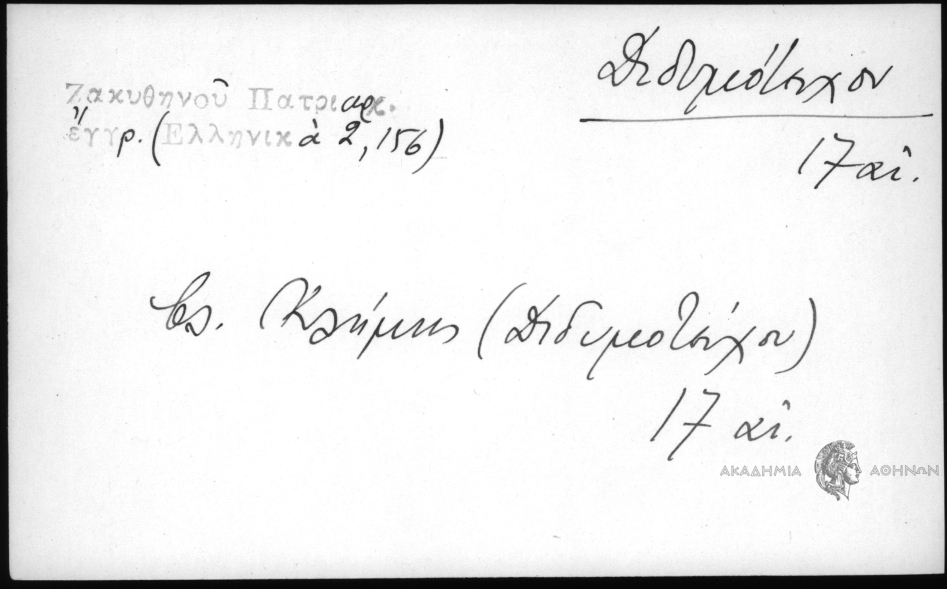 Διδυμότειχον
Ζακυθηνοῦ Πατριαρχ.
ἔγγρ. (Ἑλληνικὰ 2, 156)
17 αἰ.
βλ. Κλήμης (Διδυμοτείχου)
17 αἰ.
ΑΚΑΔΗΜΙΑ ΑΘΗΝΩΝ